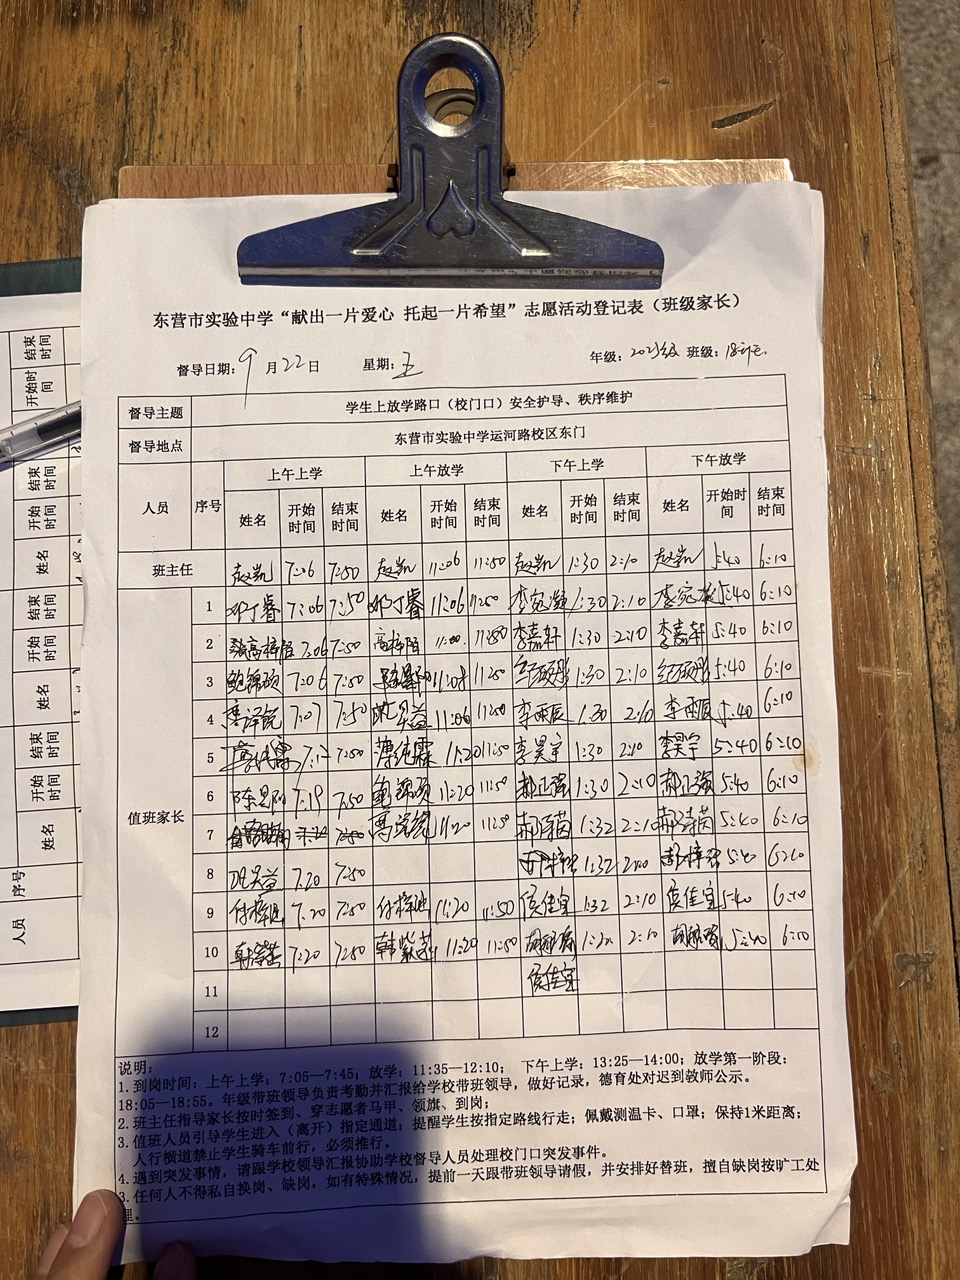 东营市实验中学“献出一片爱心 托起一片希望”志愿活动登记表（班级家长）
督导日期：9月22日 星期：五 年级：2021级 班级：18
督导主题 学生上放学路口（校门口）安全护导、秩序维护
督导地点 东营市实验中学运河路校区东门
人员 序号 上午上学 上午放学 下午上学 下午放学
姓名 开始时间 结束时间 姓名 开始时间 结束时间 姓名 开始时间 结束时间 姓名 开始时间 结束时间
班主任 赵凯 7:06 7:50 赵凯 11:06 11:50 赵凯 1:30 2:10 赵凯 5:40 6:10
值班家长
1 邓丁睿 7:06 7:50 邓丁睿 11:06 11:50 李宛凝 1:30 2:10 李宛凝 5:40 6:10
2 高梓陌 7:06 7:50 高梓陌 11:50 李嘉轩 1:30 2:10 李嘉轩 5:40 6:10
3 鲍锦硕 7:06 7:50 11:08 11:50 纪硕彤 1:30 2:10 纪硕彤 5:40 6:10
4 7:07 7:50 11:06 11:50 李雨辰 1:30 2:10 李雨辰 5:40 6:10
5 7:50 薄纯霖 11:20 11:50 李昊宇 1:30 2:10 李昊宇 5:40 6:10
6 陈昱阳 7:19 7:50 鲍锦硕 11:20 11:50 郝正强 1:30 2:10 郝正强 5:40 6:10
7 11:20 11:50 1:32 2:10 5:40 6:10
8 7:20 7:50 1:32 彭梓 5:40 6:10
9 付梓池 7:20 7:50 付梓池 11:20 11:50 侯佳宜 1:32 2:10 侯佳宜 5:40 6:10
10 韩紫芸 7:20 7:50 韩紫芸 11:20 11:50 2:10 5:40 6:10
11 侯佳宜
12
说明：
1.到岗时间：上午上学：7:05—7:45；放学：11:35—12:10； 下午上学：13:25—14:00；放学第一阶段：
18:05—18:55。年级带班领导负责考勤并汇报给学校带班领导，做好记录，德育处对迟到教师公示。
2.班主任指导家长按时签到、穿志愿者马甲、领旗、到岗；
3.值班人员引导学生进入（离开）指定通道；提醒学生按指定路线行走；佩戴测温卡、口罩；保持1米距离；
人行横道禁止学生骑车前行，必须推行。
4.遇到突发事情，请跟学校领导汇报协助学校督导人员处理校门口突发事件。
3.任何人不得私自换岗、缺岗，如有特殊情况，提前一天跟带班领导请假，并安排好替班，擅自缺岗按旷工处
理。
结束时间
开始时间
结束时间
开始时间
姓名
结束时间
开始时间
姓名
结束时间
开始时间
姓名
序号
人员